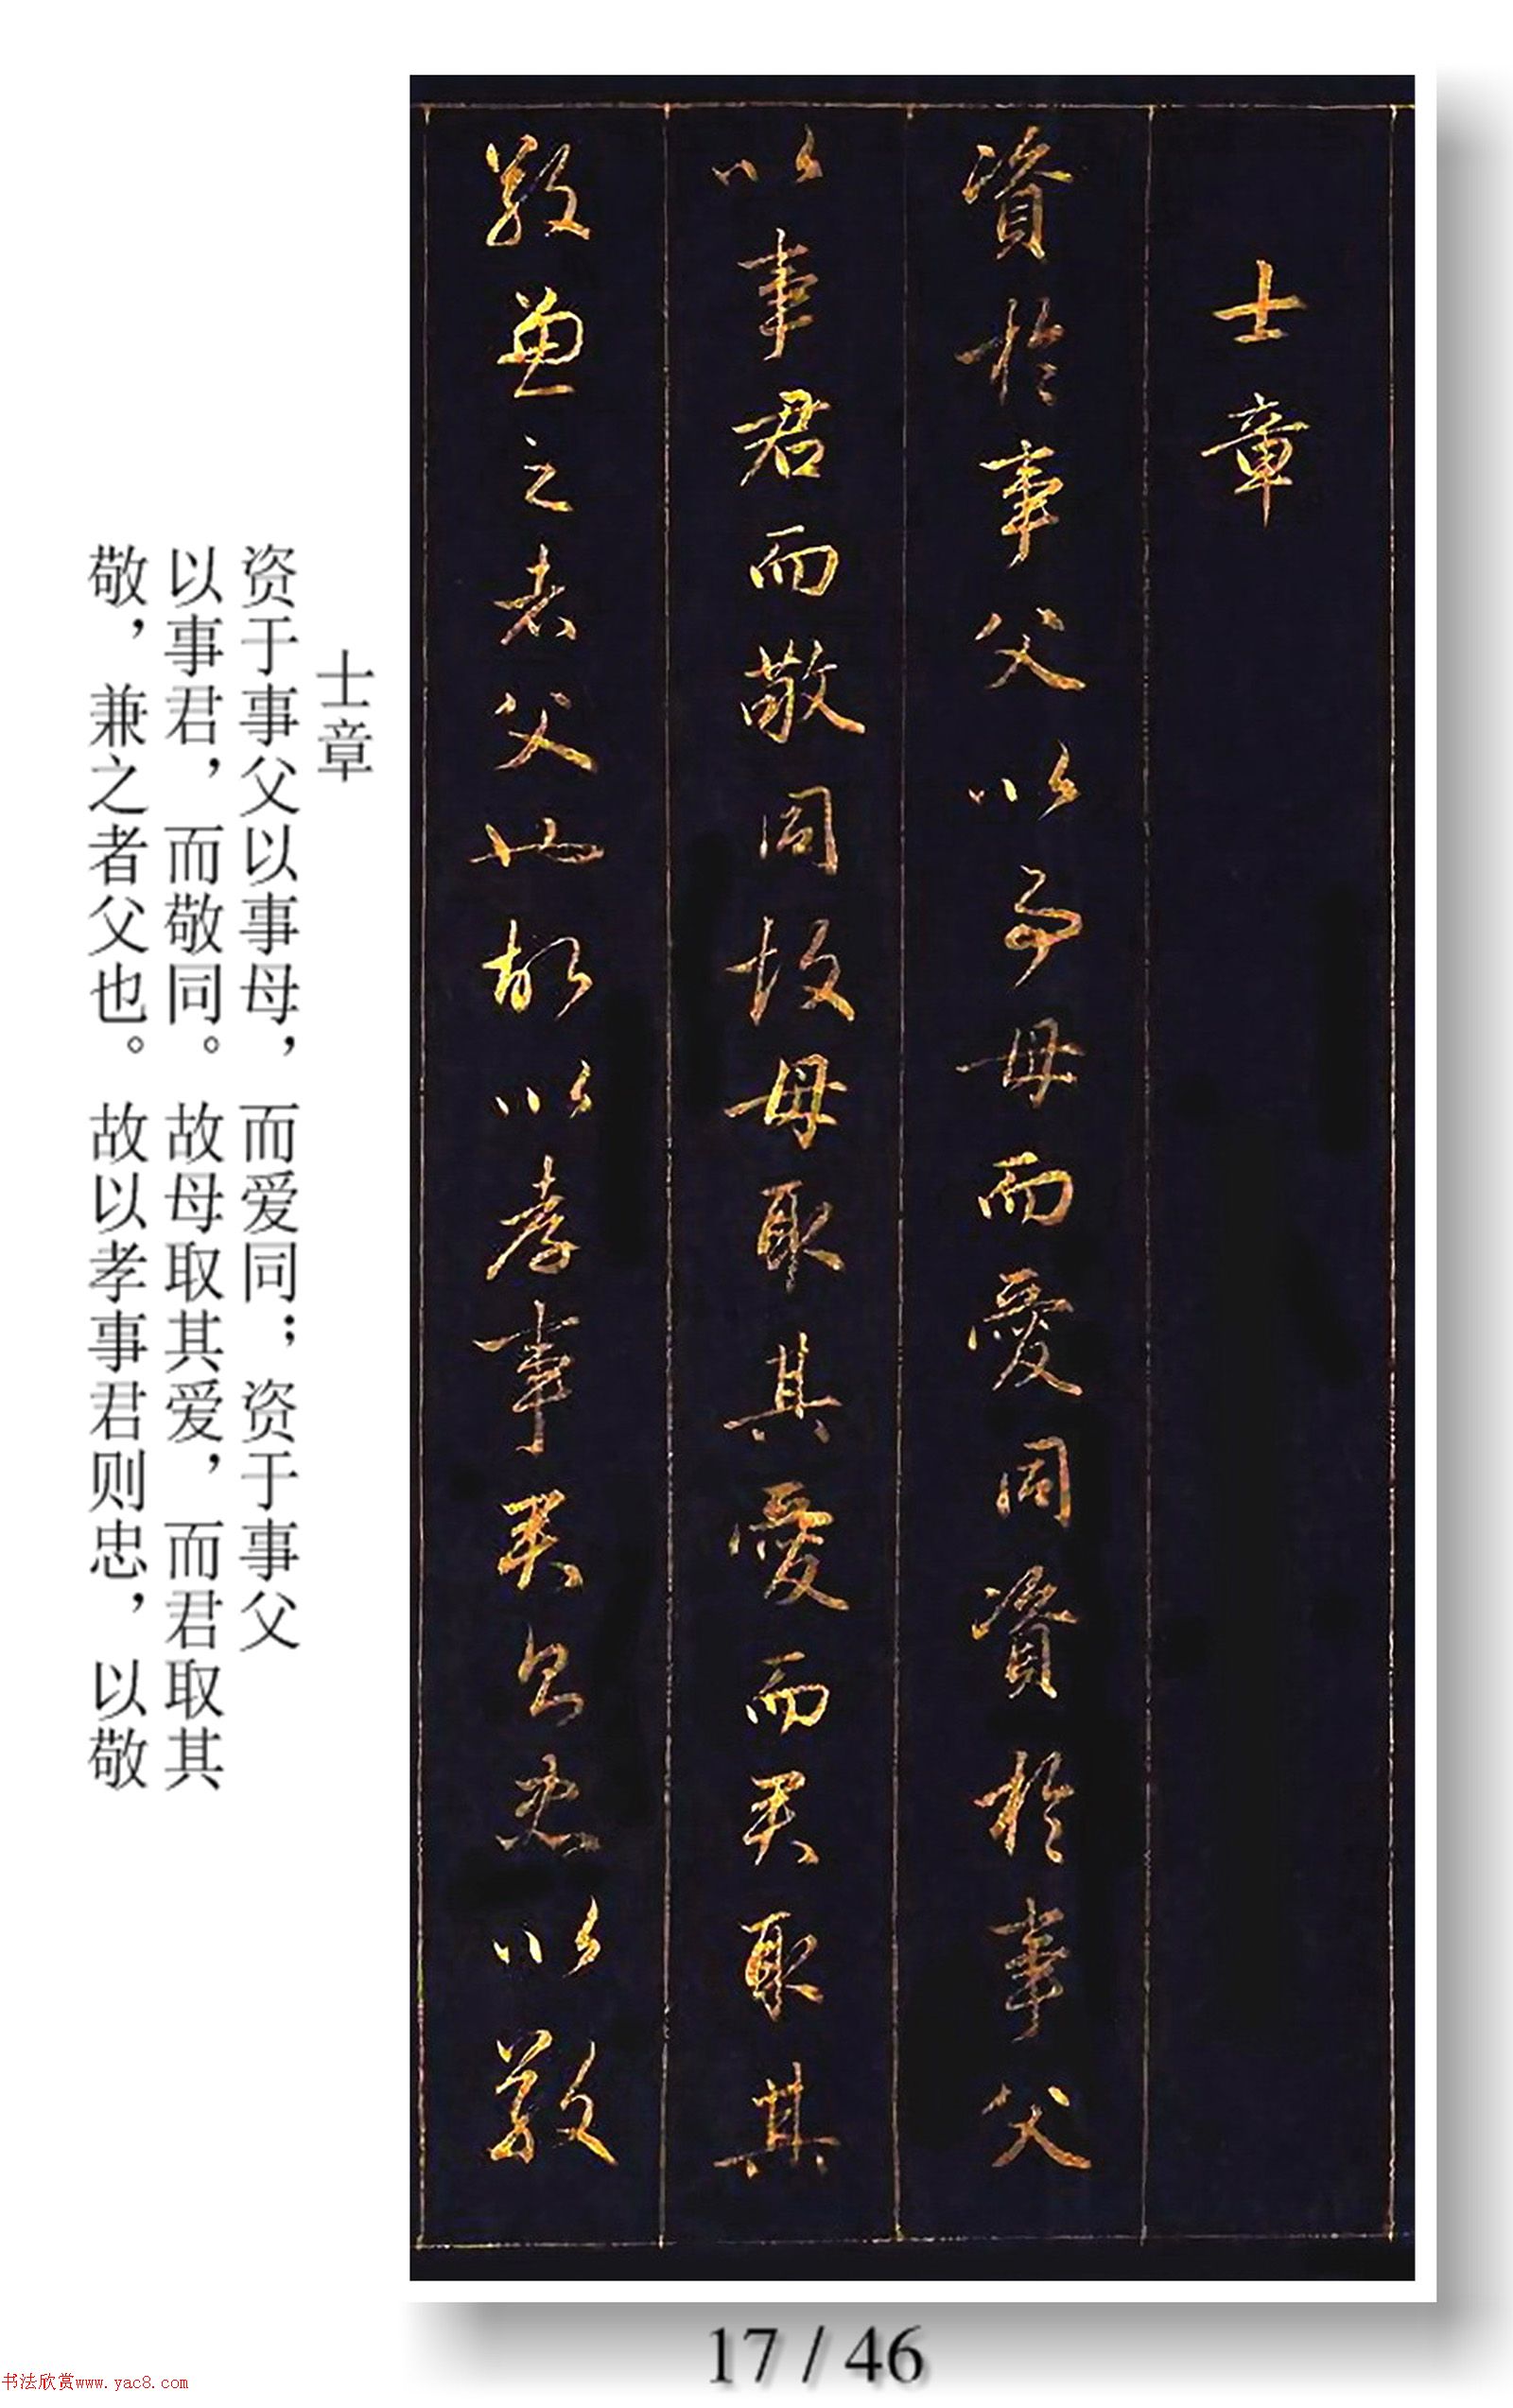 士章
資於事父以事母而愛同資於事父
以事君而敬同故母取其愛而君取其
敬兼之者父也故以孝事君則忠以敬
士章
资于事父以事母，而爱同；资于事父
以事君，而敬同。故母取其爱，而君取其
敬，兼之者父也。故以孝事君则忠，以敬
17 / 46
书法欣赏www.yac8.com